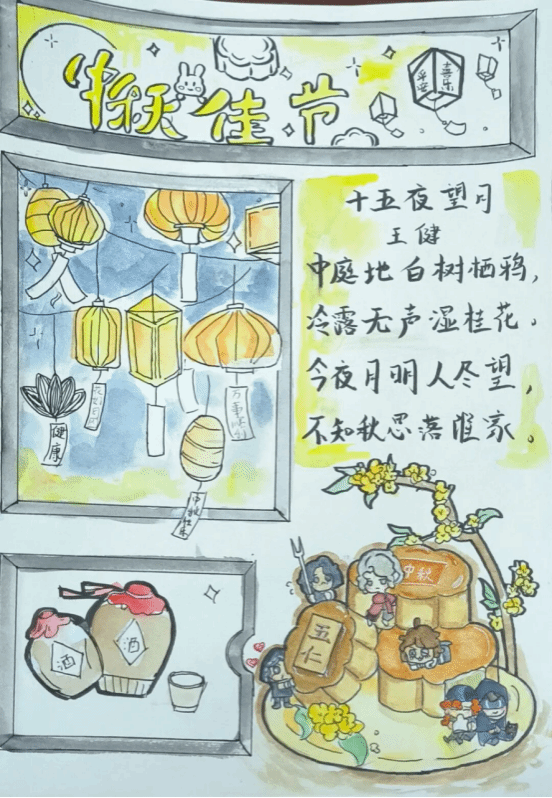 中秋佳节
平安
喜乐
十五夜望月
王健
中庭地白树栖鸦，
冷露无声湿桂花。
今夜月明人尽望，
不知秋思落谁家。
健康
中秋快乐
酒
酒
中秋
五仁